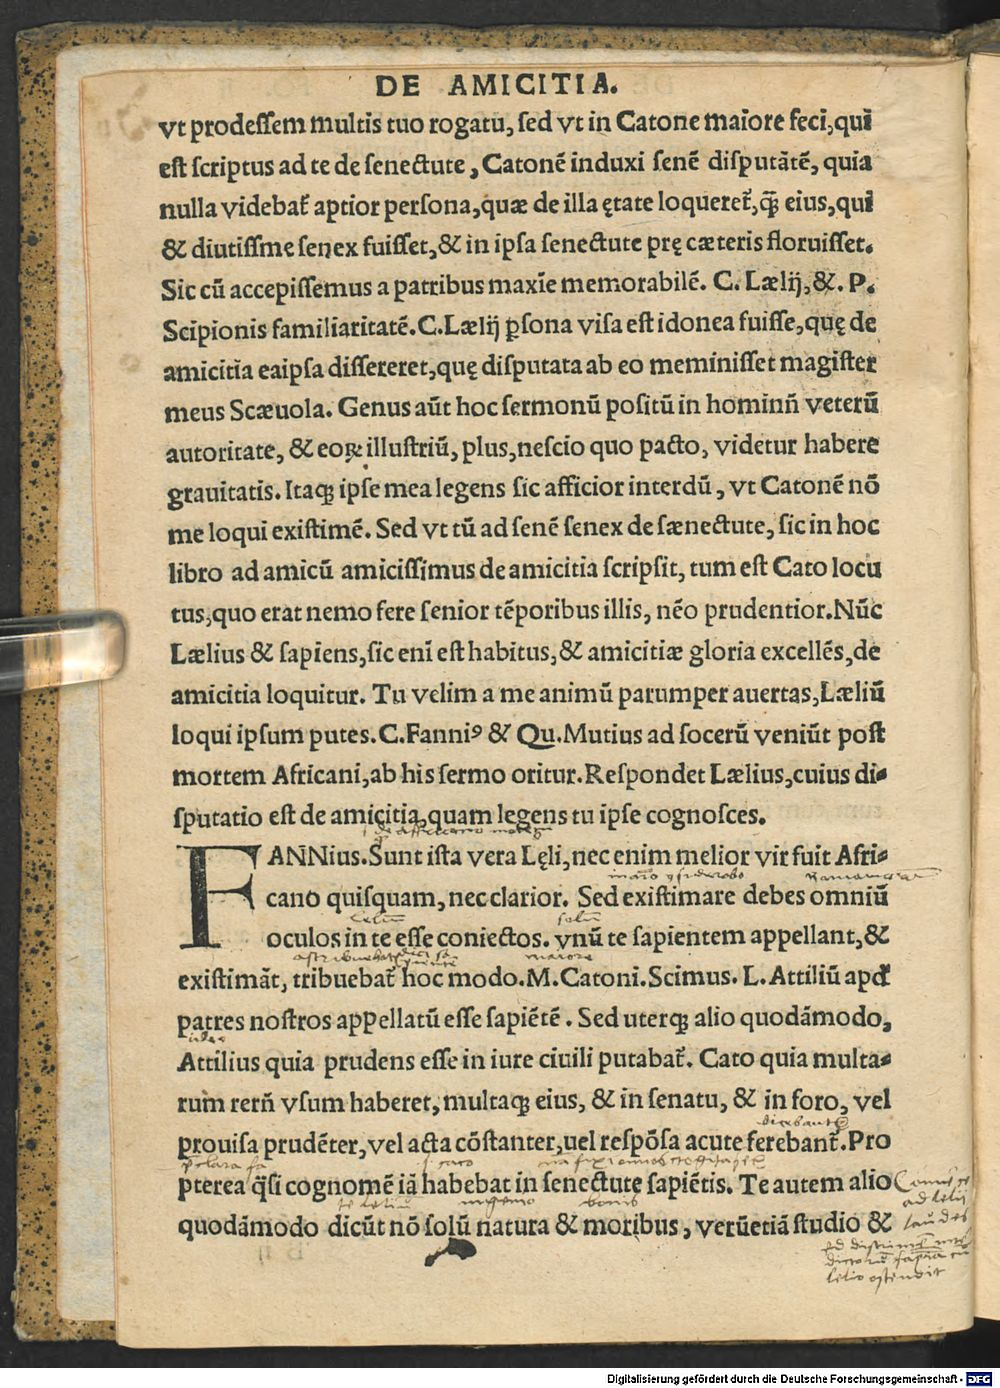 DE AMICITIA.
vt prodeſſem multis tuo rogatu, ſed vt in Catone maiore feci, qui
eſt ſcriptus ad te de ſenectute, Catonē induxi ſenē diſputātē, quia
nulla videbat᷑ aptior perſona, quæ de illa ętate loqueret᷑, q̃ꝫ eius, qui
& diutiſſme ſenex fuiſſet, & in ipſa ſenectute prę cæteris floruiſſet.
Sic cū accepiſſemus a patribus maxīe memorabilē. C. Lælij, &. P.
Scipionis familiaritatē. C. Lælij ꝑſona viſa eſt idonea fuiſſe, quę de
amicitia eaipſa diſſereret, quę diſputata ab eo meminiſſet magiſter
meus Scæuola. Genus aūt hoc ſermonū poſitū in hominū veterū
autoritate, & eoꝝ illuſtriū, plus, neſcio quo pacto, videtur habere
grauitatis. Itaqꝫ ipſe mea legens ſic afficior interdū, vt Catonē nō
me loqui exiſtimē. Sed vt tū ad ſenē ſenex de ſænectute, ſic in hoc
libro ad amicū amiciſſimus de amicitia ſcripſit, tum eſt Cato locu
tus, quo erat nemo fere ſenior tēporibus illis, nēo prudentior. Nūc
Lælius & ſapiens, ſic enī eſt habitus, & amicitiæ gloria excellēs, de
amicitia loquitur. Tu velim a me animū parumper auertas, Læliū
loqui ipſum putes. C. Fanniꝰ & Qu. Mutius ad ſocerū veniūt poſt
mortem Africani, ab his ſermo oritur. Reſpondet Lælius, cuius di-
ſputatio eſt de amicitia, quam legens tu ipſe cognoſces.
FANNius. Sunt iſta vera Lęli, nec enim melior vir fuit Afri-
cano quiſquam, nec clarior. Sed exiſtimare debes omniū
oculos in te eſſe coniectos. vnū te ſapientem appellant, &
maiore
exiſtimāt, tribuebat᷑ hoc modo. M. Catoni. Scimus. L. Attiliū apđ
patres noſtros appellatū eſſe ſapiētē. Sed uterqꝫ alio quodāmodo,
Attilius quia prudens eſſe in iure ciuili putabat᷑. Cato quia multa-
rum rerū vſum haberet, multaqꝫ eius, & in ſenatu, & in foro, vel
prouiſa prudēter, vel acta cōſtanter, uel reſpōſa acute ferebant᷑. Pro
pterea q̄ſi cognomē iā habebat in ſenectute ſapiētis. Te autem alio
quodāmodo dicūt nō ſolū natura & moribus, verūetiā ſtudio &
laudes
lelio oſtendit
Digitalisierung gefördert durch die Deutsche Forschungsgemeinschaft - DFG